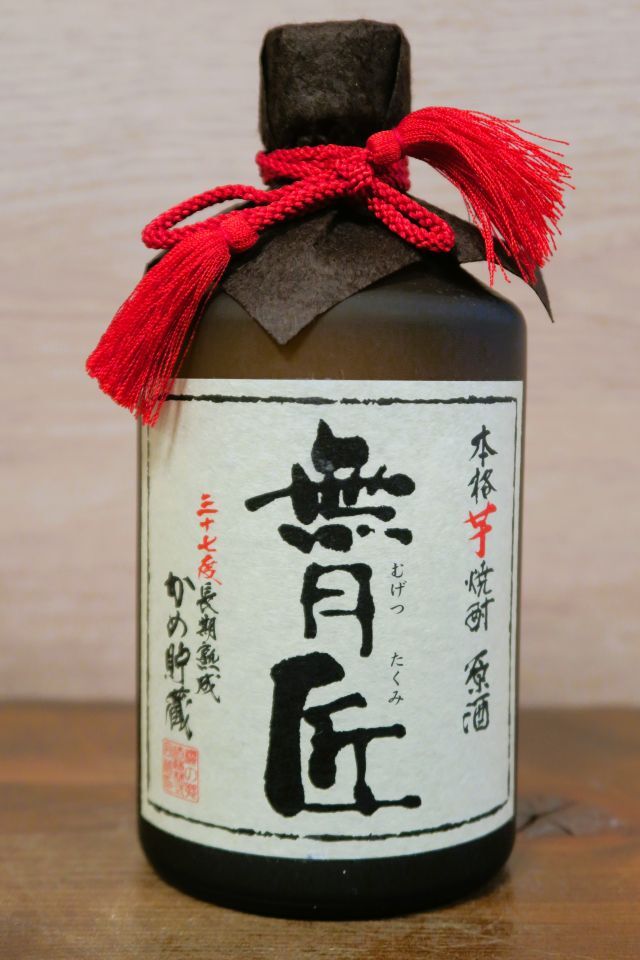 本格芋焼酎 原酒
無月匠
むげつ たくみ
三十七度長期熟成
かめ貯蔵